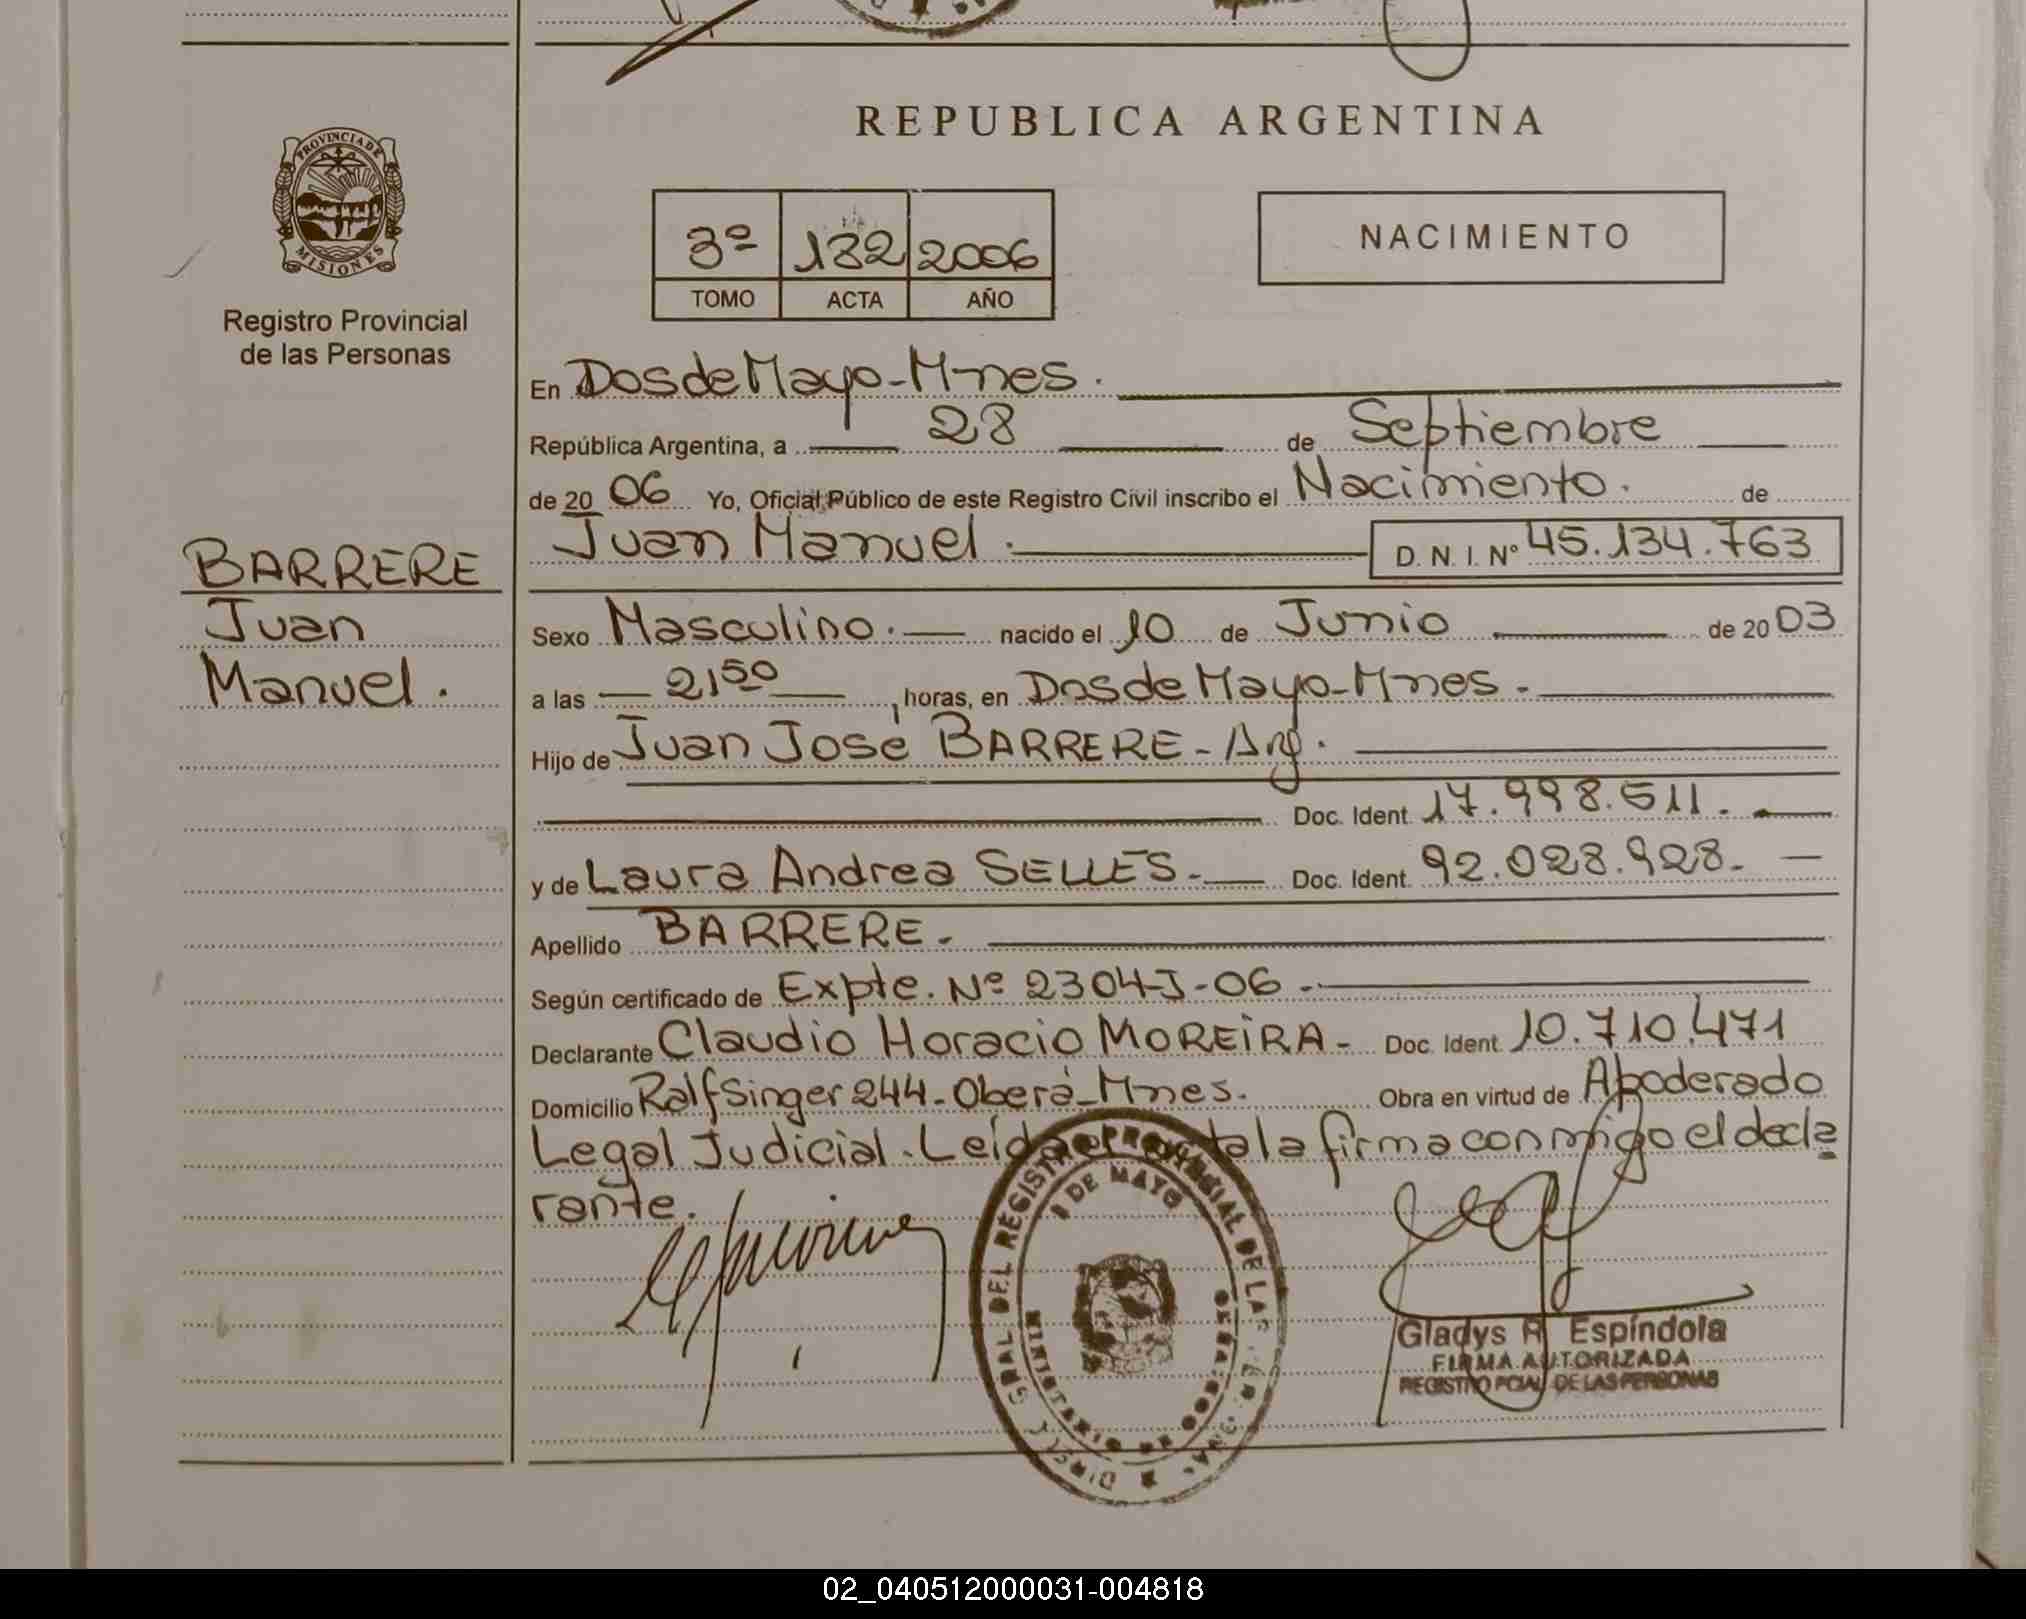 REPUBLICA ARGENTINA
PROVINCIA DE
MISIONES
Registro Provincial
de las Personas
3º 132 2006
TOMO ACTA AÑO
NACIMIENTO
BARRERE
Juan
Manuel.
En Dos de Mayo-Mnes.
República Argentina, a 28 de Septiembre
de 20 06 Yo, Oficial Público de este Registro Civil inscribo el Nacimiento. de
Juan Manuel. D. N. I. Nº 45.134.763
Sexo Masculino. nacido el 10 de Junio de 20 03
a las 21 50 horas, en Dos de Mayo-Mnes.
Hijo de Juan José BARRERE-Arg.
Doc. Ident. 17.998.511.
y de Laura Andrea SELLES- Doc. Ident. 92.028.928-
Apellido BARRERE.
Según certificado de Expte. Nº 2304-J-06.
Declarante Claudio Horacio MOREIRA- Doc. Ident. 10.710.471
Domicilio Ralf Singer 244-Oberá-Mnes. Obra en virtud de Apoderado
Legal Judicial. Leída el acta la firma conmigo el decla
rante.
DEL REGISTRO PROVINCIAL DE LAS
DE MAYO
MINISTERIO DE
Gladys R Espíndola
FIRMA AUTORIZADA
REGISTRO PCIAL DE LAS PERSONAS
02_040512000031-004818